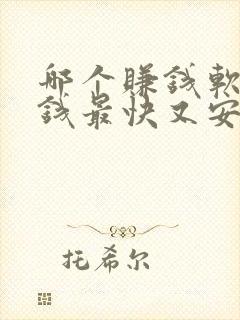 那个赚钱软
钱最快又安
托希尔